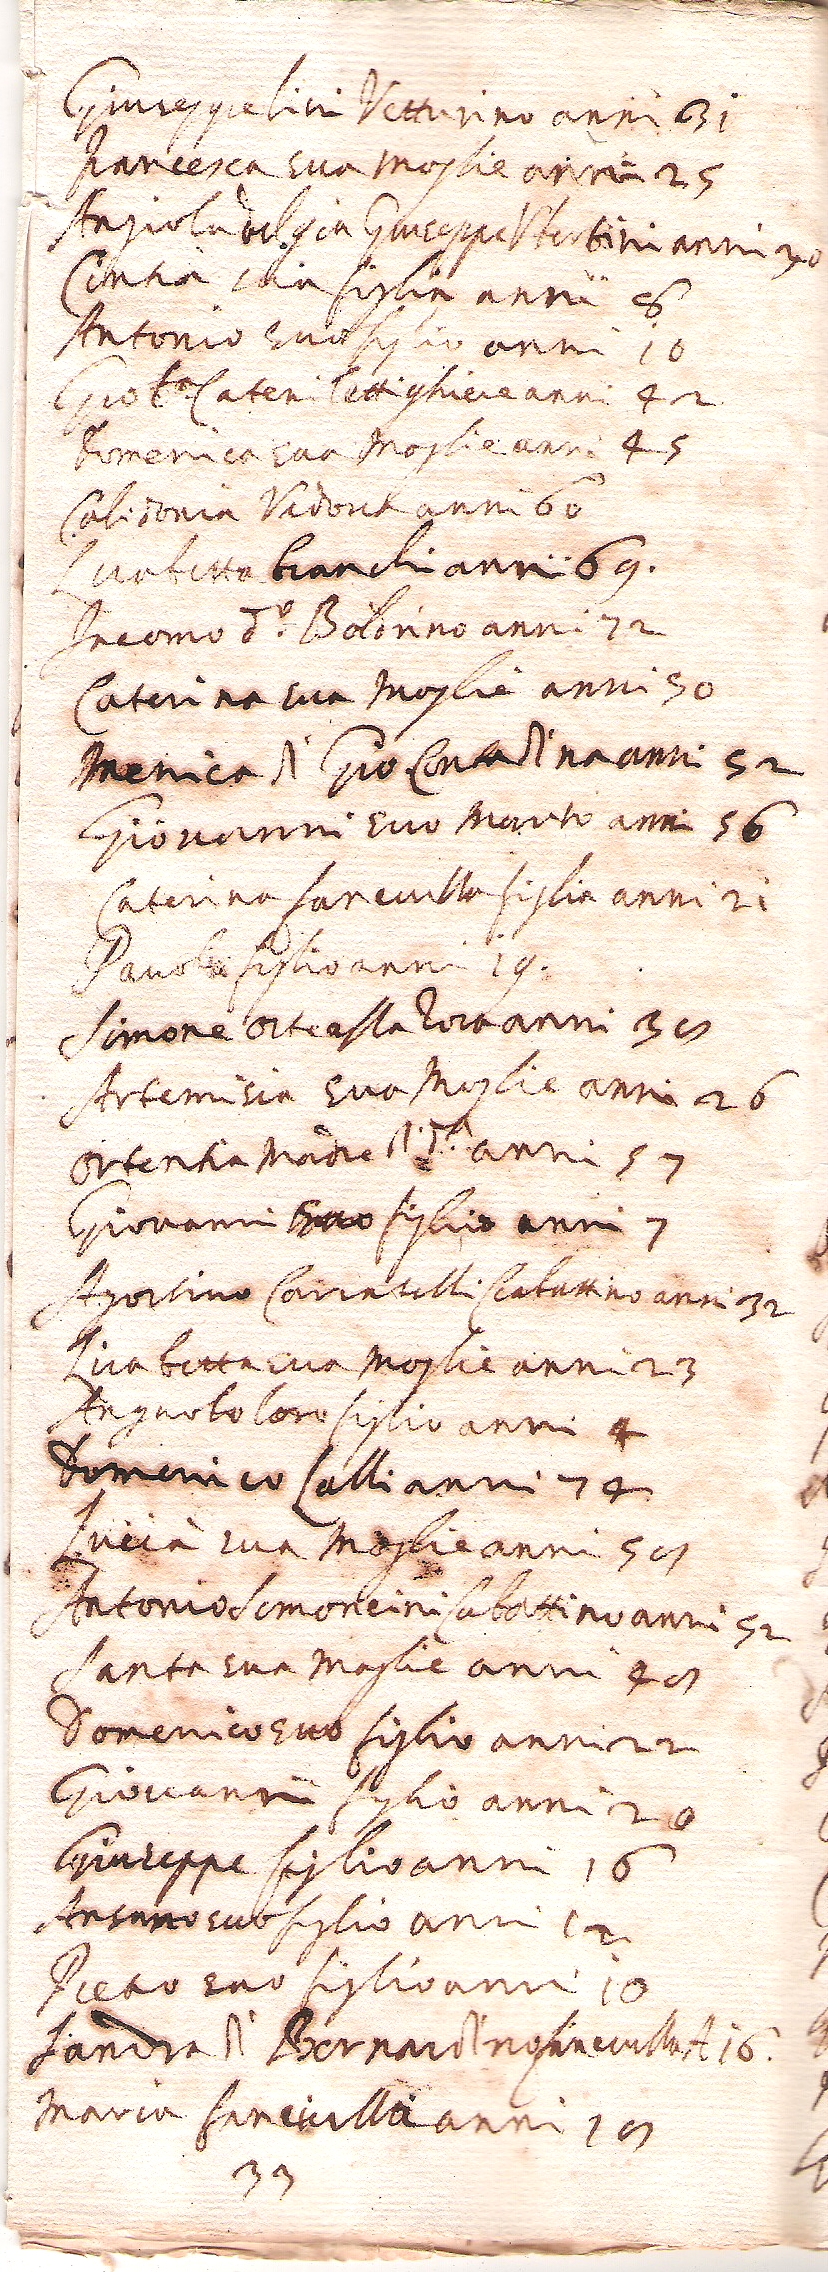 Giuseppe lini Vetturino anni 31
francesca sua moglie anni 25
Angiola del qm Giuseppe anni 30
Cintia sua figlia anni 8
Antonio suo figlio anni 10
Gio bta Cateni lettighiere anni 42
domenica sua moglie anni 45
Calidonia Vedova anni 60
Lisabetta bianchi anni 69.
Jacomo do. Boldrino anni 72
Caterina sua moglie anni 50
Menica di Gio Contadina anni 52
Giovanni suo marito anni 56
Caterina fanciulla figlia anni 21
Pauolo figlio anni 19.
Simone anni 39
Artemisia sua Moglie anni 26
Ortentia Madre di da. anni 57
Giovanni suo figlio anni 7
Agostino Ciabattino anni 32
Lisabetta sua Moglie anni 23
Angnolo loro figlio anni 4
Domenico Lalli anni 74
Lucia sua Moglie anni 59
Antonio Simoncini Ciabattino anni 52
Santa sua Moglie anni 49
Domenico suo figlio anni 22
Giovanni figlio anni 20
Giuseppe figlio anni 16
Ansano suo figlio anni 12
Pietro suo figlio anni 10
Sandra di Bernardino fanciulla A 16.
Maria fanciulla anni 19
33